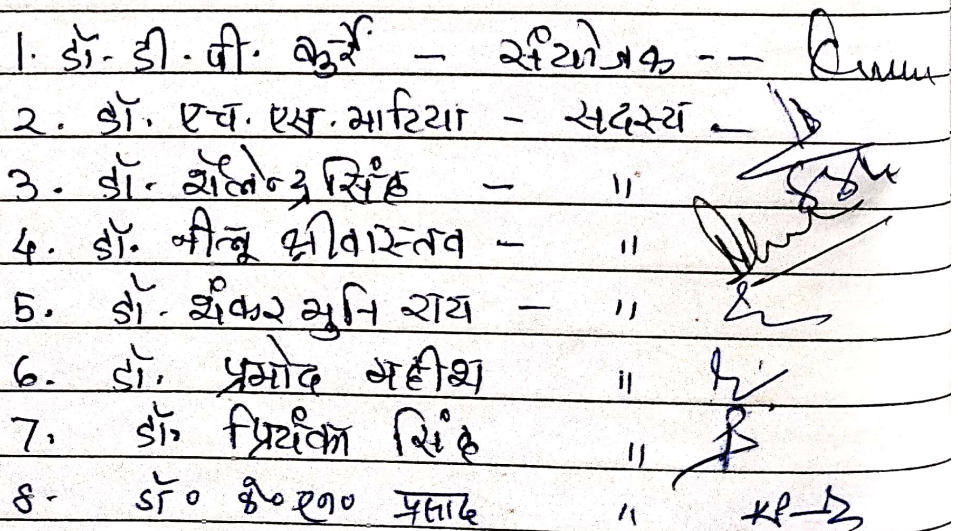 1. डॉ. डी. पी. कुर्रे - संयोजक --
2. डॉ. एच. एस. भाटिया - सदस्य -
3. डॉ. शैलेन्द्र सिंह - "
4. डॉ. नीलू श्रीवास्तव - "
5. डॉ. शंकर मुनि राय - "
6. डॉ. प्रमोद महीश "
7. डॉ. प्रियंका सिंह "
8- डॉ० के०एन० प्रसाद "